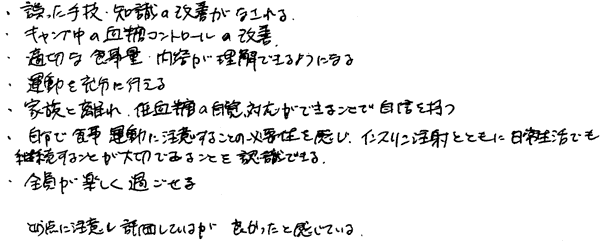 ・誤った手技・知識の改善がなされる.
・キャンプ中の血糖コントロールの改善.
・適切な食事量・内容が理解できるようになる
・運動を充分に行える
・家族と離れ、低血糖の自覚、対応ができることで自信を持つ
・自分で食事 運動に注意することの必要性を感じ、インスリン注射とともに日常生活でも
継続することが大切であることを認識できる.
・全員が楽しく過ごせる
の点に注意し評価しているが 良かったと感じている.